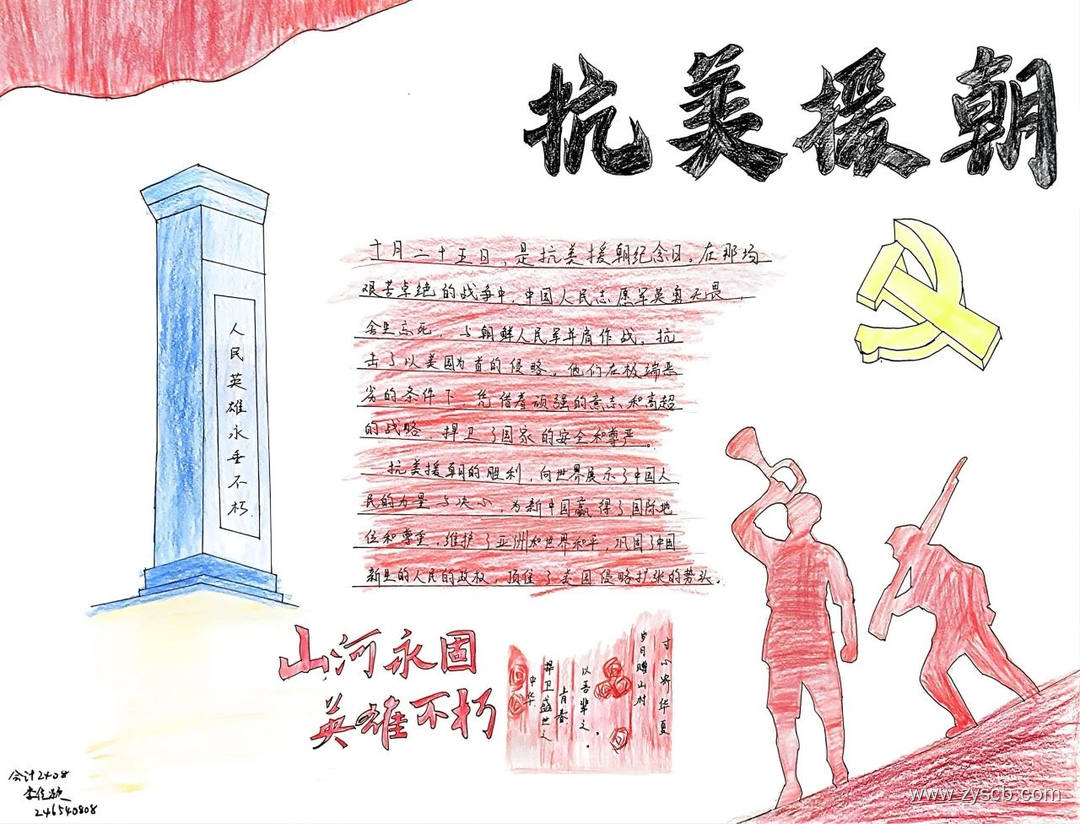 抗美援朝
十月二十五日，是抗美援朝纪念日。在那场
艰苦卓绝的战争中，中国人民志愿军英勇无畏，
舍生忘死，与朝鲜人民军并肩作战，抗
击了以美国为首的侵略。他们在极端恶
劣的条件下，凭借着顽强的意志和高超
的战略，捍卫了国家的安全和尊严。
抗美援朝的胜利，向世界展示了中国人
民的力量与决心，为新中国赢得了国际地
位和尊重，维护了亚洲和世界和平，巩固了中国
新生的人民的政权，顶住了美国侵略扩张的势头。
人民英雄永垂不朽
山河永固
英雄不朽
寸心寄华夏
岁月赠山村
以吾辈之
青春
捍卫盛世之
中华
会计2408
246540808
www.zyscb.com